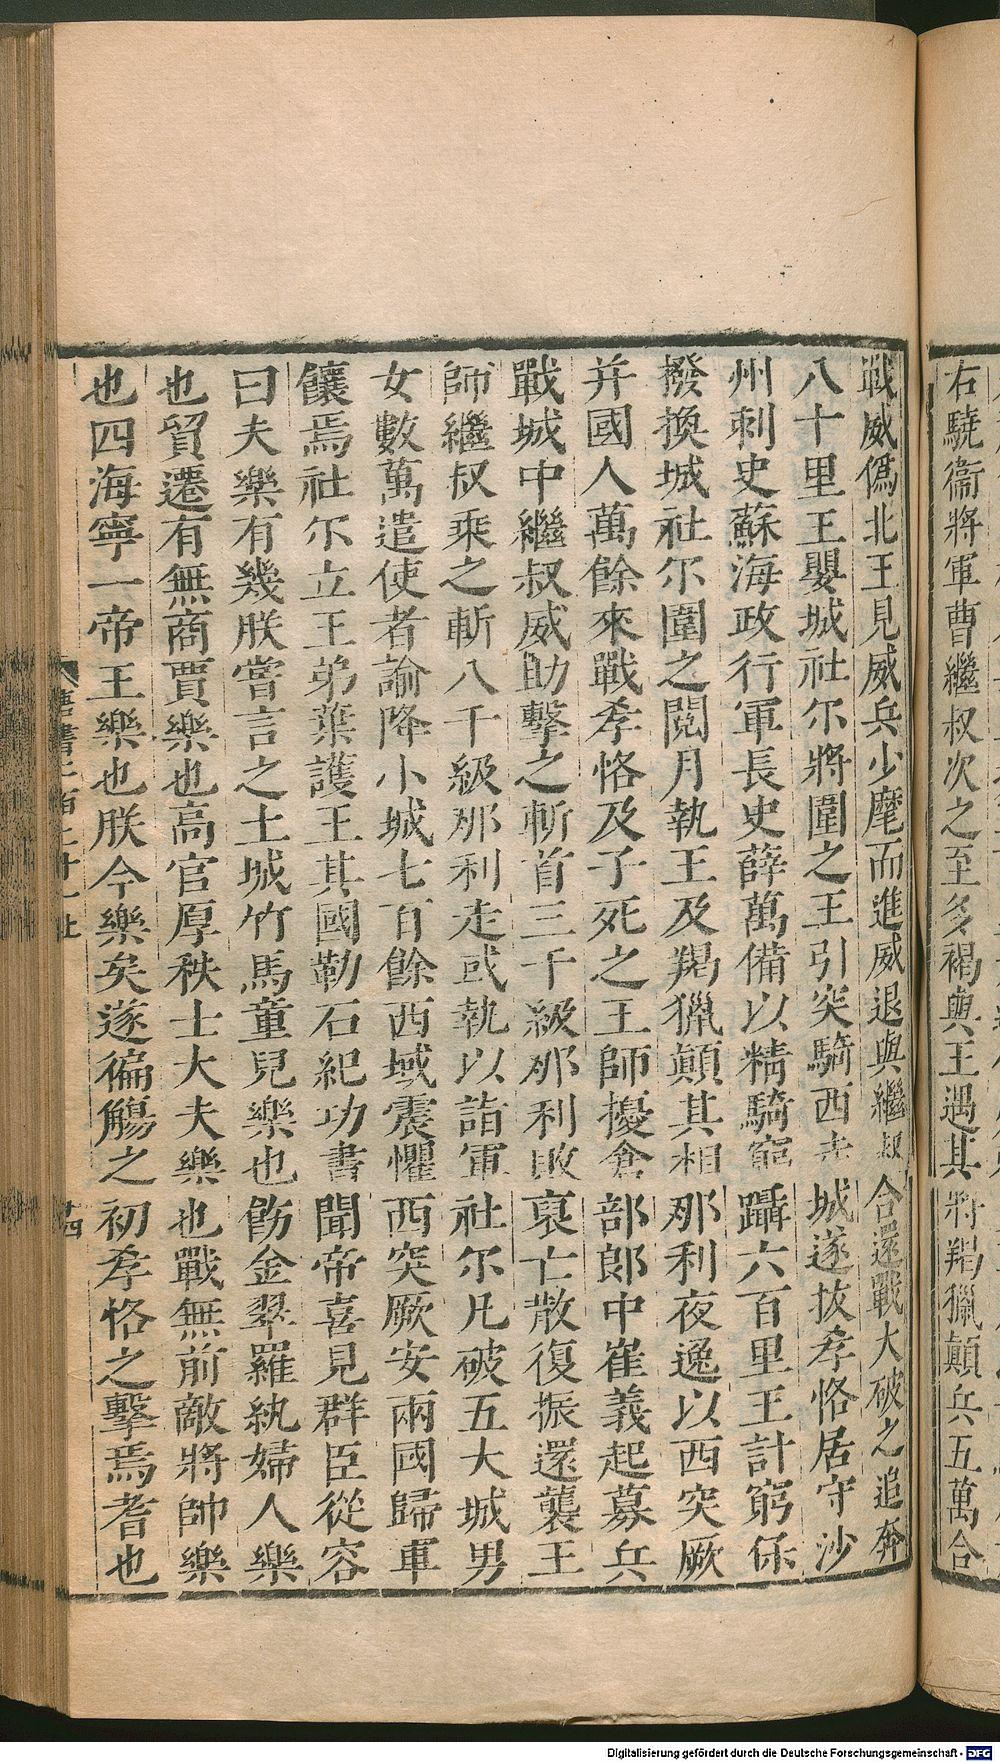 右驍衞將軍曹繼叔次之至多褐與王遇其將羯獵顛兵五萬合
戰威僞北王見威兵少麾而進威退與繼叔合還戰大破之追奔
八十里王嬰城社尒將圍之王引突騎西走城遂拔孝恪居守沙
州刺史蘇海政行軍長史薛萬備以精騎窮躡六百里王計窮保
撥換城社尒圍之閱月執王及羯獵顛其相那利夜逸以西突厥
并國人萬餘來戰孝恪及子死之王師擾倉部郞中崔義起募兵
戰城中繼叔威助擊之斬首三千級那利敗裒亡散復振還襲王
師繼叔乘之斬八千級那利走或執以詣軍社尒凡破五大城男
女數萬遣使者諭降小城七百餘西域震懼西突厥安兩國歸軍
饟焉社尒立王弟葉護王其國勒石紀功書聞帝喜見群臣從容
曰夫樂有幾朕嘗言之土城竹馬童兒樂也飭金翠羅紈婦人樂
也貿遷有無商賈樂也高官厚秩士大夫樂也戰無前敵將帥樂
也四海寧一帝王樂也朕今樂矣遂徧觴之初孝恪之擊焉耆也
唐書二百二十一上
十四
Digitalisierung gefördert durch die Deutsche Forschungsgemeinschaft - DFG